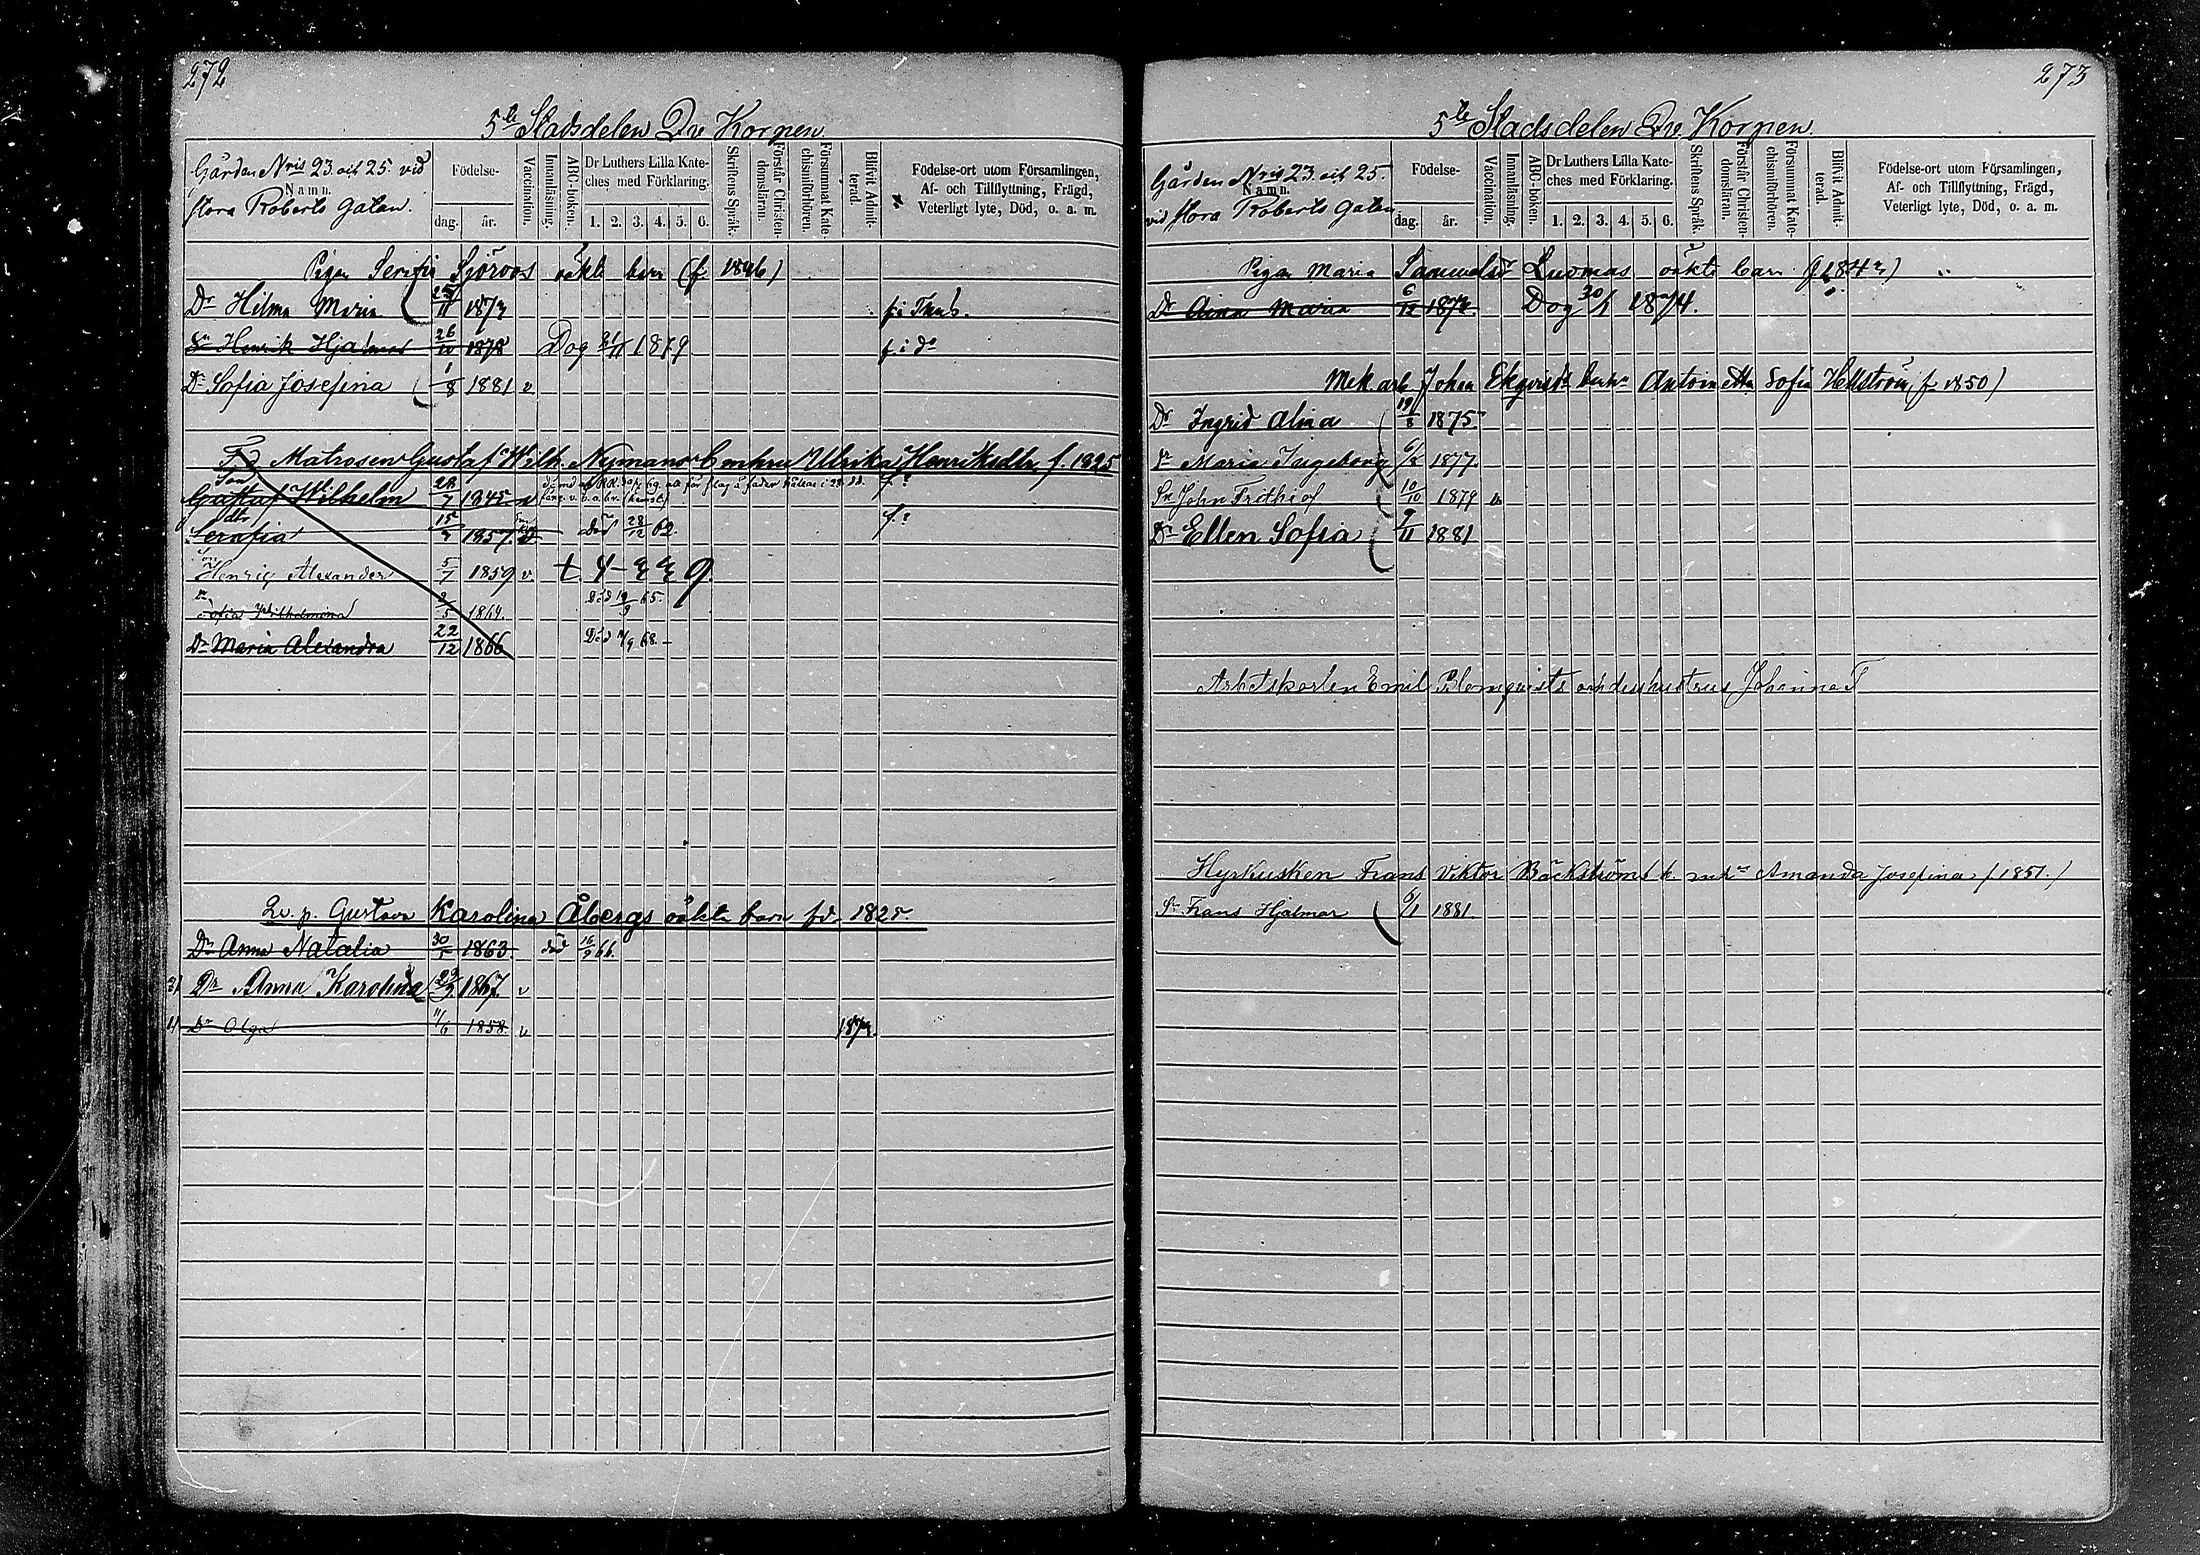 272
5te Stadsdelen Qre Korpen.
Gården Nris 23. och 25. vid
Namn.
stora Roberts gatan.
Födelse-
dag. år.
Vaccination.
Innanläsning.
ABC-boken.
Dr Luthers Lilla Kate-
ches med Förklaring.
1. 2. 3. 4. 5. 6.
Skriftens Språk.
Förstår Christen-
domsläran.
Försummat Kate-
chismiförhören.
Blifvit Admit-
terad.
Födelse-ort utom Församlingen,
Af- och Tillflyttning, Frägd,
Veterligt lyte, Död, o. a. m.
Pigan Serafia Sjöroos oäkta barn (f 1846)
Dr Hilma Maria 25/11 1873
Sn Henrik Hjalmar 26/10 1878 Dog 21/11 1879 f. i do
Dr Sofia Josefina 1/8 1881 v
Matrosen Gustaf Wilh. Nymans enkn Ulrika Henriksdtr f. 1825
Son
Gustaf Wilhelm 1845 f. ?
dtr
Serafia 15 1857. Död 28/12 62. f. ?
Son
Henric Alexander 5/7 1859 v.
Sofia Wilhelmina 2/5 1864. Död 19/9 65.
Dr Maria Alexandra 22/12 1866 Död 11/9 68.
Qv. p. Gustava Karolina Åbergs oäkta barn fd. 1825
Dr Anna Natalia 30 1863. död 16/9 66.
31 Dr Anna Karolina 1867. v
11 Dr Olga 11/6 1858. v
273
5te Stadsdelen Qre Korpen.
Gården Nris 23. och 25.
Namn.
vid stora Roberts Gatan
Födelse-
dag. år.
Vaccination.
Innanläsning.
ABC-boken.
Dr Luthers Lilla Kate-
ches med Förklaring.
1. 2. 3. 4. 5. 6.
Skriftens Språk.
Förstår Christen-
domsläran.
Försummat Kate-
chismiförhören.
Blifvit Admit-
terad.
Födelse-ort utom Församlingen,
Af- och Tillflyttning, Frägd,
Veterligt lyte, Död, o. a. m.
Pigan Maria Samuelsdr Luomas oäkta barn
Dr Aina Maria 6/12 Dog 30/1 1874.
Mek arb Johan Ekqvists Antoinetta Sofia Hellström (f. 1850)
Dr Ingrid Alina 19/8 1875
Dr Maria Ingeborg 1877.
Sn John Frithiof 10/10 1879 v
Dr Ellen Sofia 9/11 1881
Arbetskarlen Emil Blomqvists och dess hustrus Johanna F
Hyrkusken Frans Viktor Bäckströms Amanda Josefina f 1851.)
Sn Frans Hjalmar 6/1 1881.